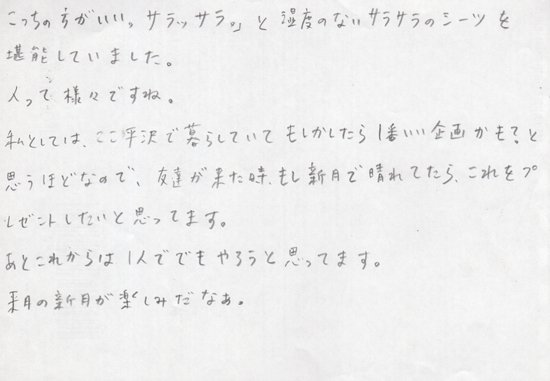 こっちの方がいいっ サラッサラ。」と 湿度のないサラサラのシーツを
堪能していました。
人って 様々ですね。
私としては、ここ平沢で暮らしていて もしかしたら 1番いい企画かも?と
思うほどなので、友達が来た時、もし新月で晴れてたら、これをプ
レゼントしたいと思ってます。
あとこれからは 1人ででもやろうと思ってます。
来月の新月が楽しみだなぁ。